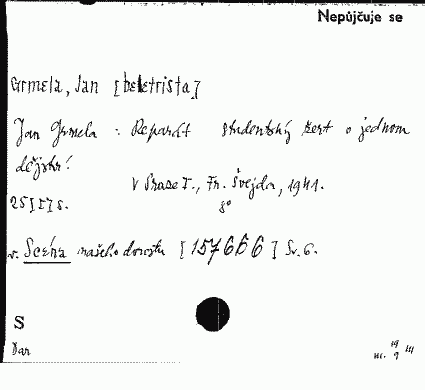 Nepůjčuje se
Grmela, Jan [beletrista]
Jan Grmela : Reparát studentský žert o jednom
dějství.
V Praze I., Fr. Švejda, 1941.
25 [I] s. 8°
v. Scéna našeho dorostu [157666] Sv. 6.
S
Dar